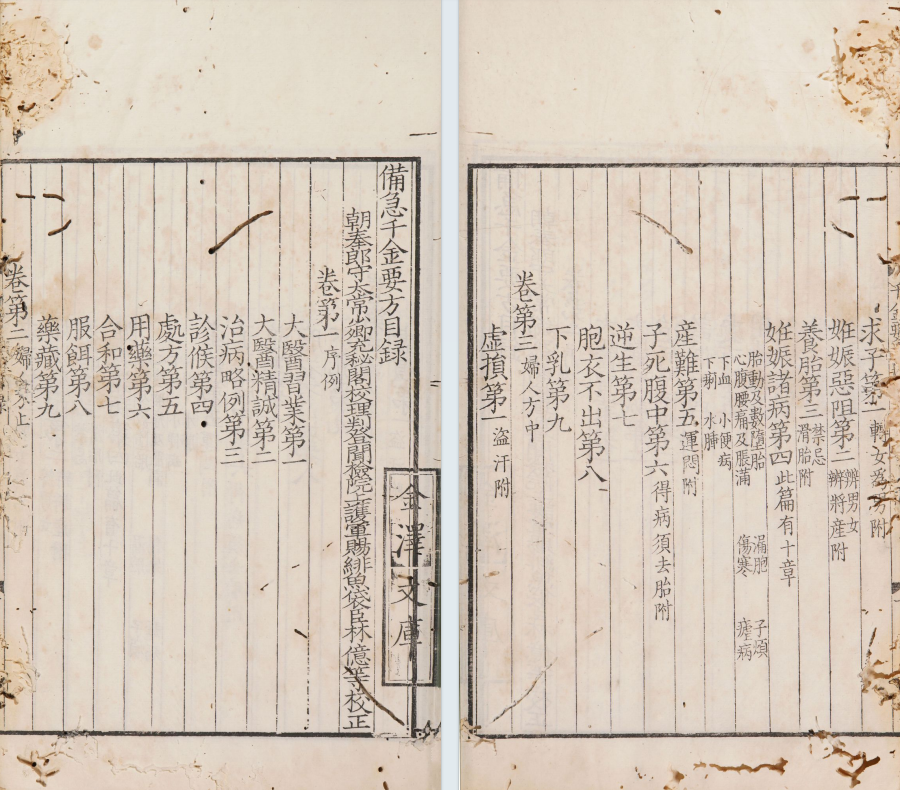 備急千金要方目録
朝奉郎守太常少卿充秘閣校理判登聞檢院上護軍賜緋魚袋臣林 億等 校正
卷第一 序例
大醫習業第一
大醫精誠第二
治病略例第三
診候第四
處方第五
用藥第六
合和第七
服餌第八
藥藏第九
卷第二 婦人方上
金澤文庫
求子第一 轉女為男附
姙娠惡阻第二 辨男女 辨將産附
養胎第三 禁忌 滑胎附
姙娠諸病第四 此篇有十章
胎動及數墮胎 漏胞 子煩
心腹腰痛及脹滿 傷寒 瘧病
下血 小便病
下痢 水腫
産難第五 運悶附
子死腹中第六 得病須去胎附
逆生第七
胞衣不出第八
下乳第九
卷第三 婦人方中
虚損第一 盗汗附